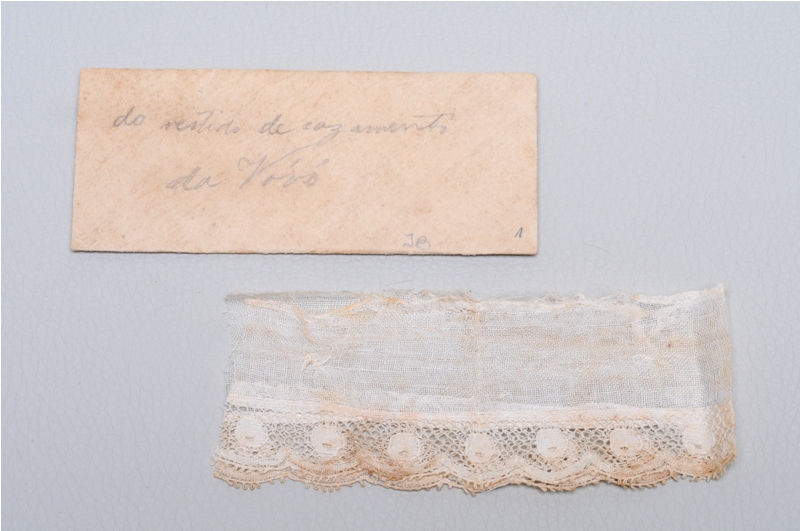 do vestido de cazamento
da Vóvó
JB
1